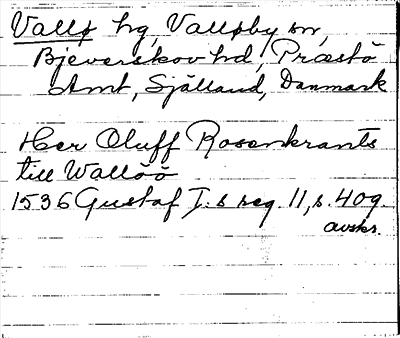 Vallø hg, Valløby sn,
Bjeverskov hd, Præstö
Amt, Själland, Danmark
Her Oluff Rosenkrants
till Walöö
1536 Gustaf I:s reg. 11, s. 409.
avskr.